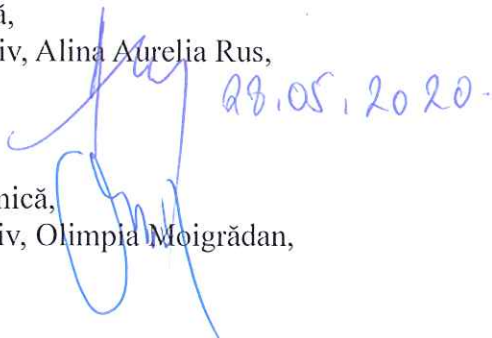 ă,
iv, Alina Aurelia Rus,
28.05.2020.
nică,
iv, Olimpia Moigrădan,